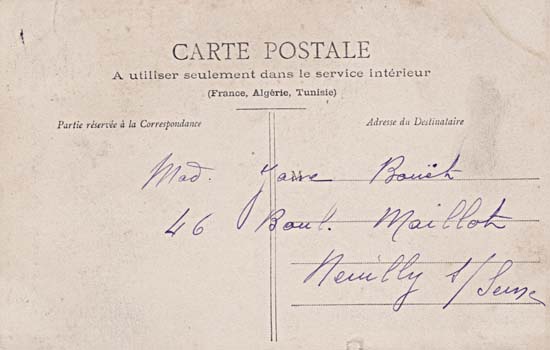 CARTE POSTALE
A utiliser seulement dans le service intérieur
(France, Algérie, Tunisie)
Partie réservée à la Correspondance
Adresse du Destinataire
Mad.
46 Boul. Maillot
Neuilly s/Seine